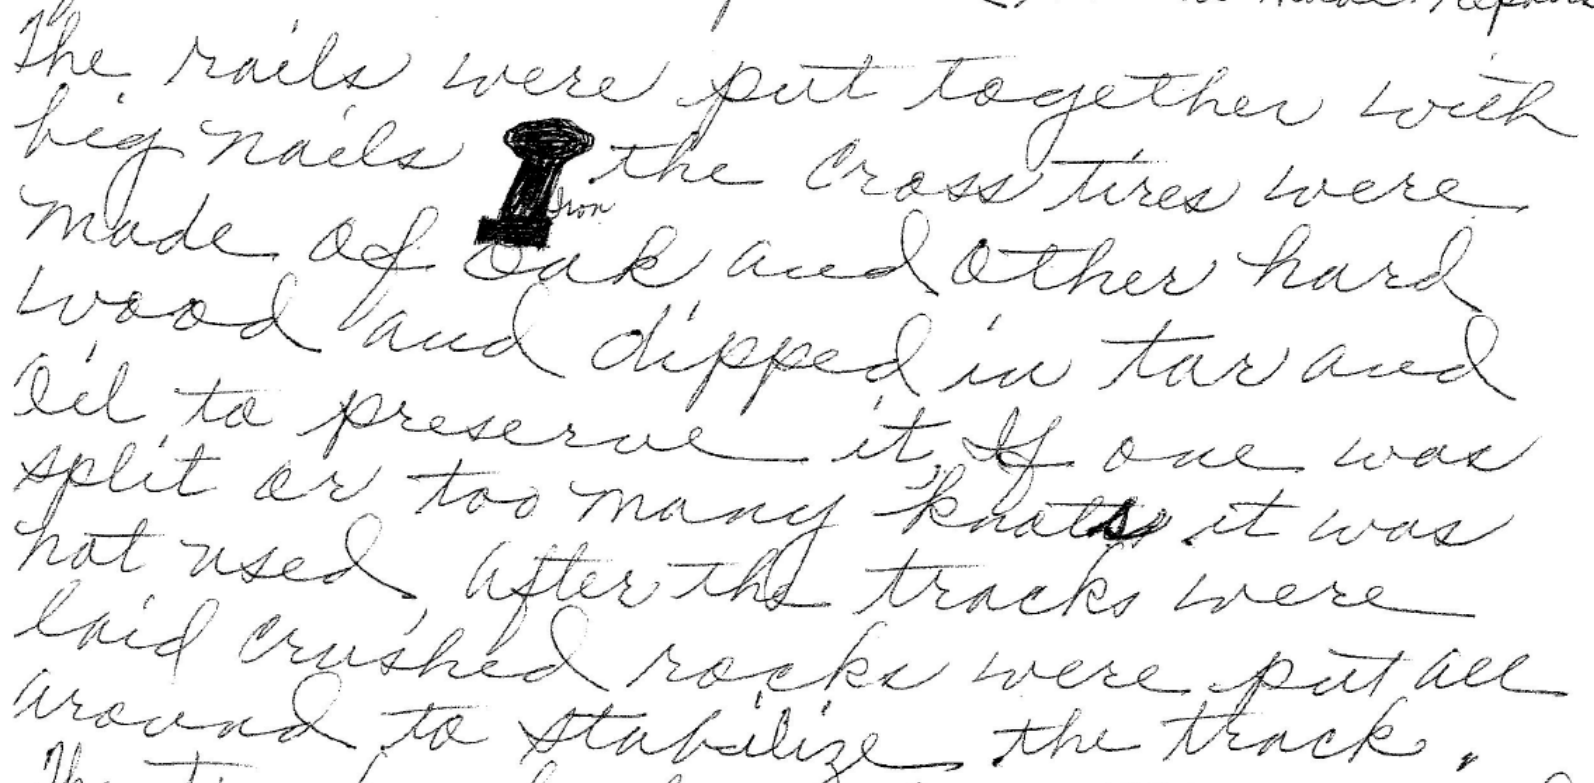 The rails were put together with
big nails the cross tires were
Iron
made of oak and other hard
wood and dipped in tar and
Oil to preserve it, If one was
split or too many knots it was
not used, after the tracks were
laid crushed rocks were put all
around to stabilize the track.
The